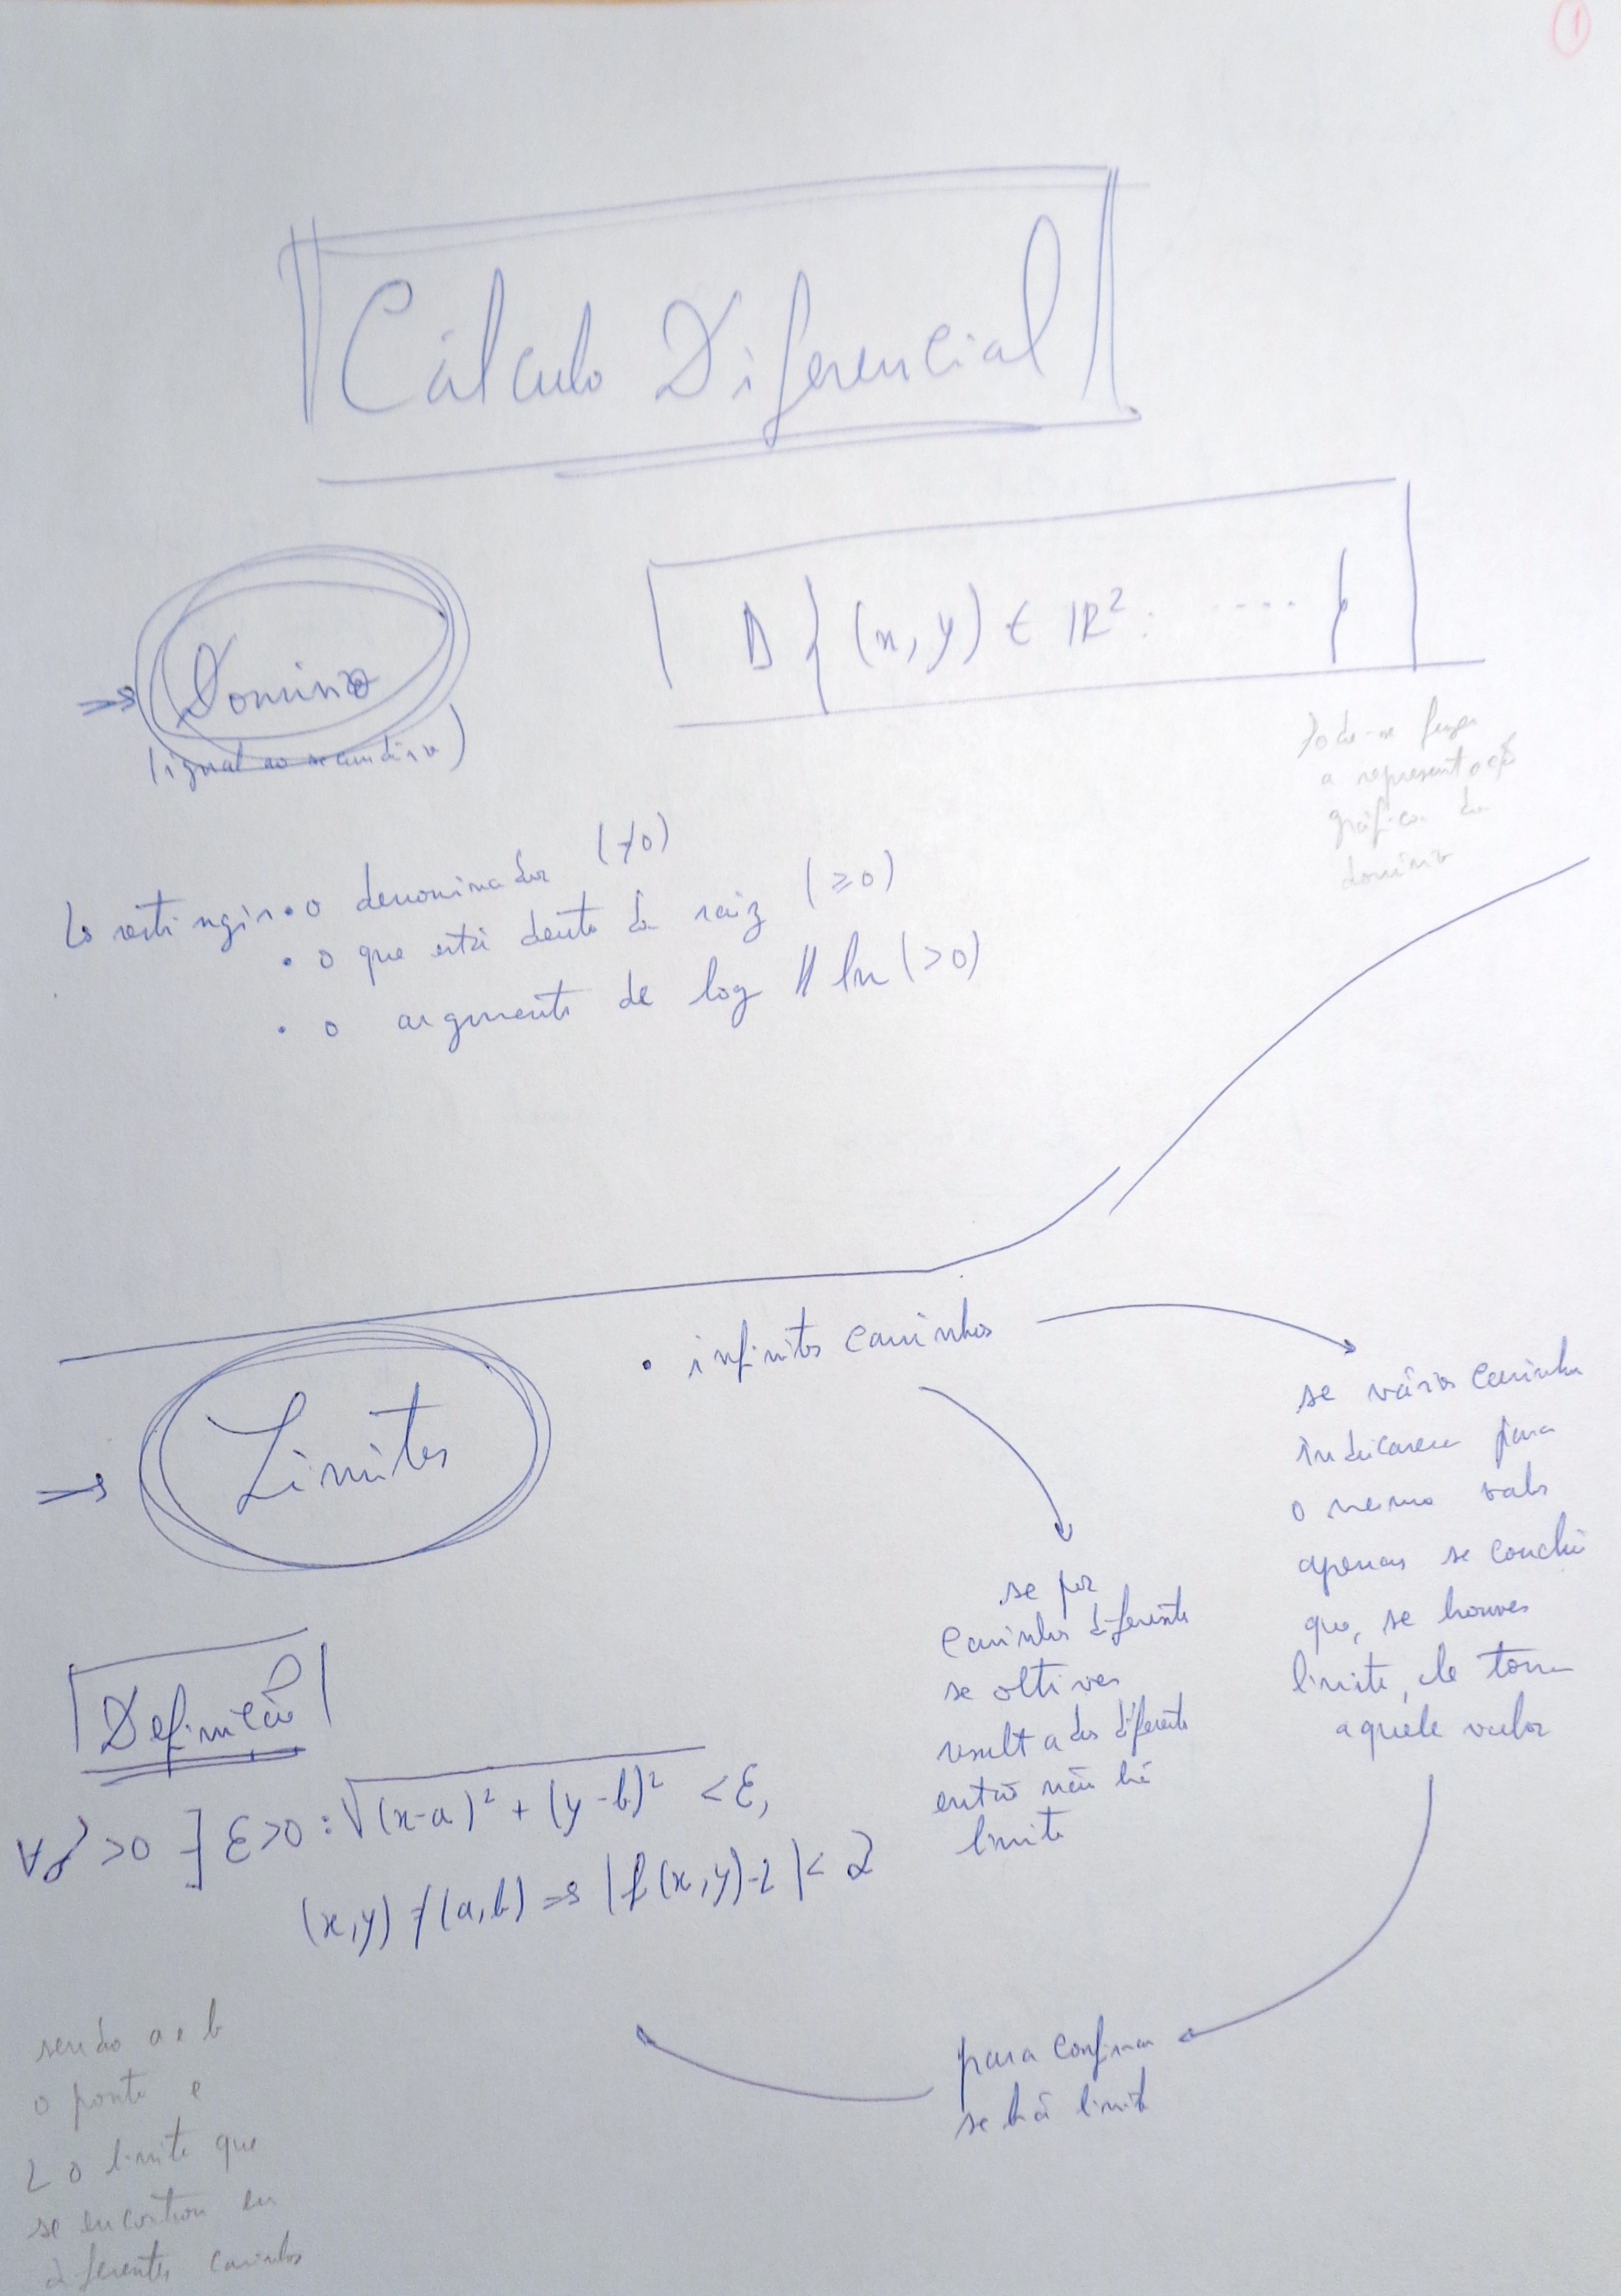 1
Cálculo Diferencial
→ Domínio
(igual ao secundário)
D { (x, y) ∈ ℝ² : ..... }
Pode-se fazer
a representação
gráfica do
domínio
↳ restringir • o denominador (≠0)
• o que está dentro da raiz (≥0)
• o argumento de log // ln (>0)
→ Limites
• infinitos caminhos
se vários caminhos
indicarem para
o mesmo valor
apenas se conclui
que, se houver
limite, ele toma
aquele valor
se por
caminhos diferentes
se obtiver
resultados diferentes
então não há
limite
Definição
∀δ >0 ∃ ε>0 : √(x-a)² + (y-b)² < ε,
(x,y) ≠ (a,b) ⇒ |f(x,y)-L| < δ
para confirmar
se há limite
sendo a e b
o ponto e
L o limite que
se encontrou em
diferentes caminhos